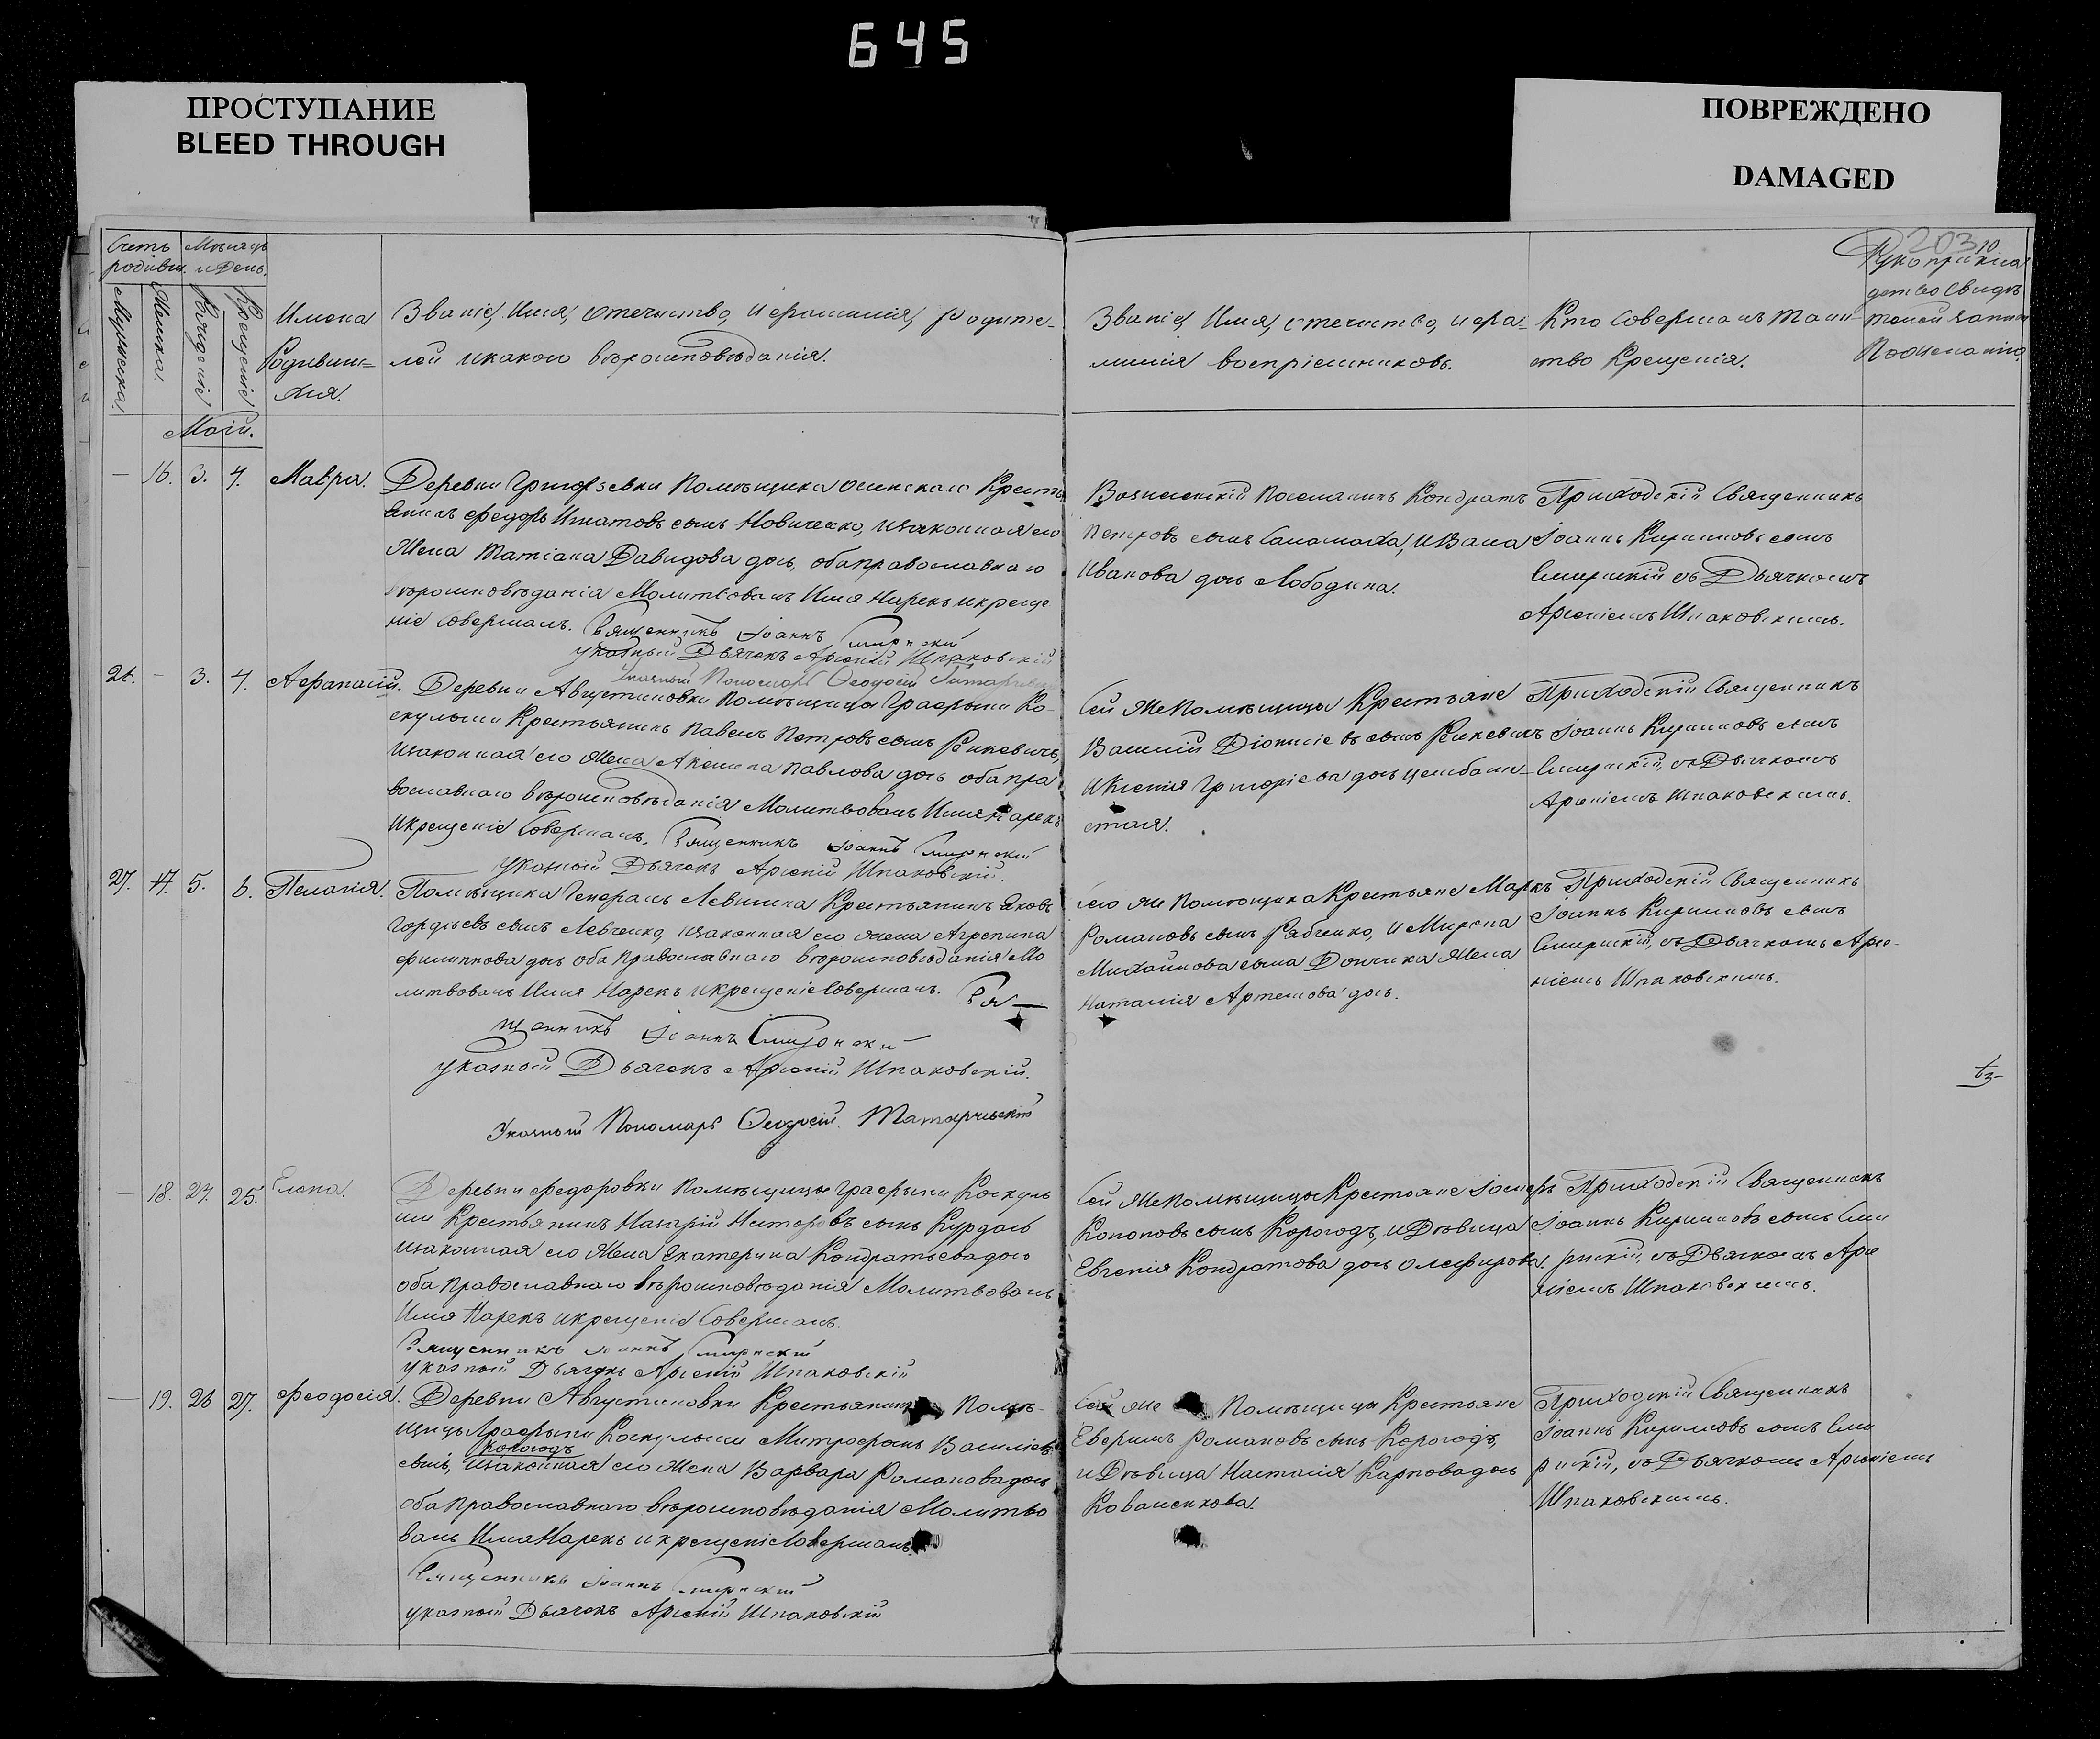 645
ПРОСТУПАНИЕ
BLEED THROUGH
ПОВРЕЖДЕНО
DAMAGED
203
Счетъ родивш.
Мѣсяцъ и День.
Мужеска.
Женска.
Рожденіе
Крещеніе
Имена
Родивши=
хся.
Званіе, Имя, отечество, и фамилія, родите-
лей и какого вѣроисповѣданія.
Званіе, Имя, отечество, и фа-
милія воспріемниковъ.
Кто совершалъ таин-
ство Крещенія.
Рукоприклад
ство свидѣ
телей записи
По желанію.
Маій.
— 16. 3. 4. Мавра.
Деревни Григорьевки Помѣщика Крестья
нинъ Федоръ Игнатовъ сынъ Новиченко, и законная его
Жена Татіана Давидова дочь, оба православнаго
вѣроисповѣданія Молитвовалъ Имя Нарекъ и креще
ніе совершалъ. Священникъ Іоаннъ Смирнский
указный Дьячекъ Арсеній Шпаковскій
указный Пономарь Феодосій
Вознесенскій Поселянинъ Кондратъ
Петровъ сынъ Саламаха, и
Иванова дочь Лободина.
Приходскій Священникъ
Іоаннъ Кирилловъ сынъ
Смирнскій съ Дьячкомъ
Арсеніемъ Шпаковскимъ.
26. — 3. 4. Афанасій.
Деревни Августиновки Помѣщицы Графыни Ко-
скульши Крестьянинъ Павелъ Петровъ сынъ Ренкевичъ,
и законная его Жена Аксинia Павлова дочь оба пра
вославнаго вѣроисповѣданія Молитвовалъ Имя Нарекъ
и крещеніе совершалъ. Священникъ Іоаннъ Смирнский
указный Дьячекъ Арсеній Шпаковскій.
Сей же Помѣщицы Крестьяне
Василій Діонисіевъ сынъ Ренкевичъ
и Ксенія Григоріева дочь
стая.
Приходскій Священникъ
Іоаннъ Кирилловъ сынъ
Смирнскій, съ Дьячкомъ
Арсеніемъ Шпаковскимъ.
27. 17. 5. 6. Пелагія.
Помѣщика Генералъ Левшина Крестьянинъ Яковъ
Гордѣевъ сынъ Левченко, и законная его жена Агрепина
Филиппова дочь оба Православнаго вѣроисповѣданія Мо
литвовалъ Имя Нарекъ и крещеніе совершалъ. Свя—
щенникъ Іоаннъ Смирнский
указный Дьячекъ Арсеній Шпаковскій.
Указный Пономарь Феодосій
Сего же Помѣщика Крестьяне Маркъ
Романовъ сынъ Рябченко, и Мирона
Михайлова сына Дончика Жена
Наталія Артемова дочь.
Приходскій Священникъ
Іоаннъ Кирилловъ сынъ
Смирнскій, съ Дьячкомъ Арсе-
ніемъ Шпаковскимъ.
— 18. 24. 25. Елена.
Деревни Федоровки Помѣщицы Графыни Коскуль
ши Крестьянинъ Назарій Несторовъ сынъ
и законная его Жена Екатерина Кондратьева дочь
оба Православнаго вѣроисповѣданія Молитвовалъ
Имя Нарекъ и крещеніе совершалъ.
Священникъ Іоаннъ Смирнский
указный Дьячекъ Арсеній Шпаковскій
Сей же Помѣщицы Крестьяне Іосифъ
Кононовъ сынъ Корогодъ, и Дѣвица
Евгенія Кондратова дочь Олефирова.
Приходскій Священникъ
Іоаннъ Кирилловъ сынъ Сми
рнскій, съ Дьячкомъ Арсе
ніемъ Шпаковскимъ.
— 19. 26 27. Феодосія.
Деревни Августиновки Крестьянинъ Помѣ-
щицы Графыни Коскульши Митрофанъ Василіевъ
Корогодъ
сынъ, и законная его Жена Варвара Романова дочь
оба Православнаго вѣроисповѣданія Молитво
валъ Имя Нарекъ и крещеніе совершалъ
Священникъ Іоаннъ Смирнский
указный Дьячекъ Арсеній Шпаковскій
Сей же Помѣщицы Крестьяне
Романовъ сынъ Корогодъ,
и Дѣвица Наталія Карпова дочь
Коваленкова.
Приходскій Священникъ
Іоаннъ Кирилловъ сынъ Сми
рнскій, съ Дьячкомъ Арсеніемъ
Шпаковскимъ.